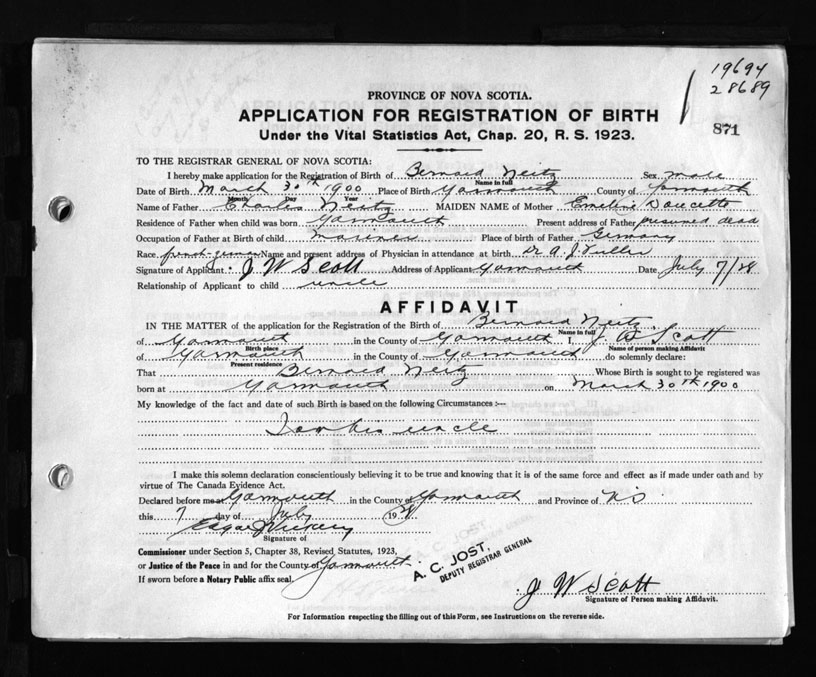 19694
28689
871
PROVINCE OF NOVA SCOTIA.
APPLICATION FOR REGISTRATION OF BIRTH
Under the Vital Statistics Act, Chap. 20, R. S. 1923.
TO THE REGISTRAR GENERAL OF NOVA SCOTIA:
I hereby make application for the Registration of Birth of Bernard Neitz Sex male
Name in full
Date of Birth March 30th 1900 Place of Birth Yarmouth County of Yarmouth
Month Day Year
Name of Father Charles Neitz MAIDEN NAME of Mother Emeline Doucette
Residence of Father when child was born Yarmouth Present address of Father presumed dead
Occupation of Father at Birth of child mariner Place of birth of Father Germany
Race french-german Name and present address of Physician in attendance at birth Dr A. J. Fuller
Signature of Applicant J W Scott Address of Applicant Yarmouth Date July 7/28
Relationship of Applicant to child uncle
AFFIDAVIT
IN THE MATTER of the application for the Registration of the Birth of Bernard Neitz
Name in full
of Yarmouth in the County of Yarmouth I, J. W Scott
Birth place Name of person making Affidavit
of Yarmouth in the County of Yarmouth do solemnly declare:
Present residence
That Bernard Neitz Whose Birth is sought to be registered was
born at Yarmouth on March 30th 1900
My knowledge of the fact and date of such Birth is based on the following Circumstances :—
I am his uncle
I make this solemn declaration conscientiously believing it to be true and knowing that it is of the same force and effect as if made under oath and by
virtue of The Canada Evidence Act.
Declared before me at Yarmouth in the County of Yarmouth and Province of N S
this 7 day of July 1928
Edgar J Vickery
Signature of
Commissioner under Section 5, Chapter 38, Revised Statutes, 1923,
or Justice of the Peace in and for the County of Yarmouth
If sworn before a Notary Public affix seal,
A. C. JOST,
DEPUTY REGISTRAR GENERAL
J W Scott
Signature of Person making Affidavit.
For Information respecting the filling out of this Form, see Instructions on the reverse side.